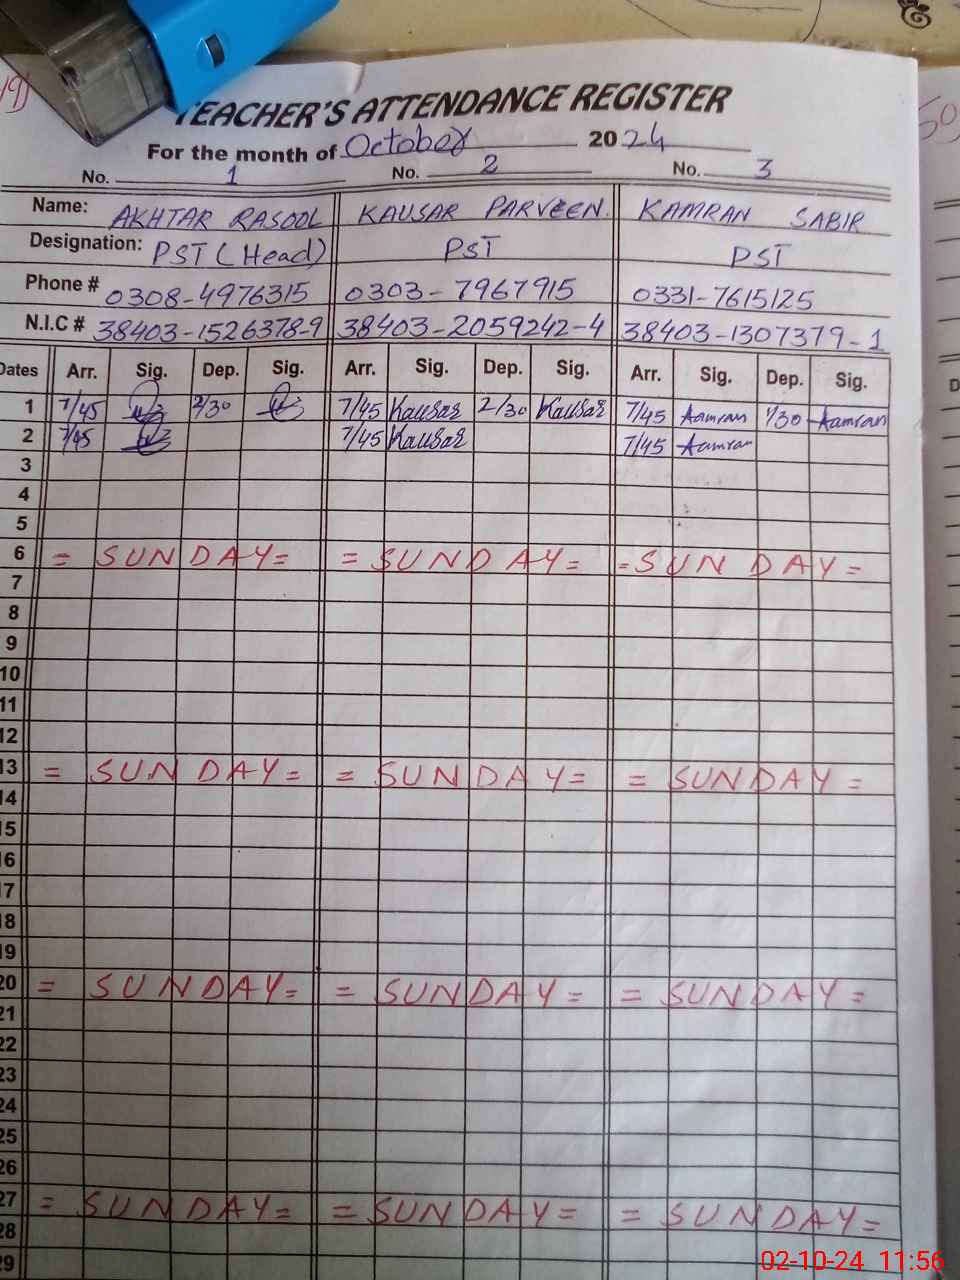 TEACHER'S ATTENDANCE REGISTER
For the month of October 2024
No. 1 No. 2 No. 3
Name: AKHTAR RASOOL KAUSAR PARVEEN. KAMRAN SABIR
Designation: PST (Head) PST PST
Phone # 0308-4976315 0303-7967915 0331-7615125
N.I.C # 38403-1526378-9 38403-2059242-4 38403-1307379-1
Dates Arr. Sig. Dep. Sig. Arr. Sig. Dep. Sig. Arr. Sig. Dep. Sig.
1 7/45 2/30 7/45 Kausar 2/30 Kausar 7/45 Kamran 1/30 Kamran
2 7/45 7/45 Kausar 7/45 Kamran
3
4
5
6 = SUNDAY = = SUNDAY = = SUNDAY =
7
8
9
10
11
12
13 = SUNDAY = = SUNDAY = = SUNDAY =
14
15
16
17
18
19
20 = SUNDAY = = SUNDAY = = SUNDAY =
21
22
23
24
25
26
27 = SUNDAY = = SUNDAY = = SUNDAY =
28
29
02-10-24 11:56